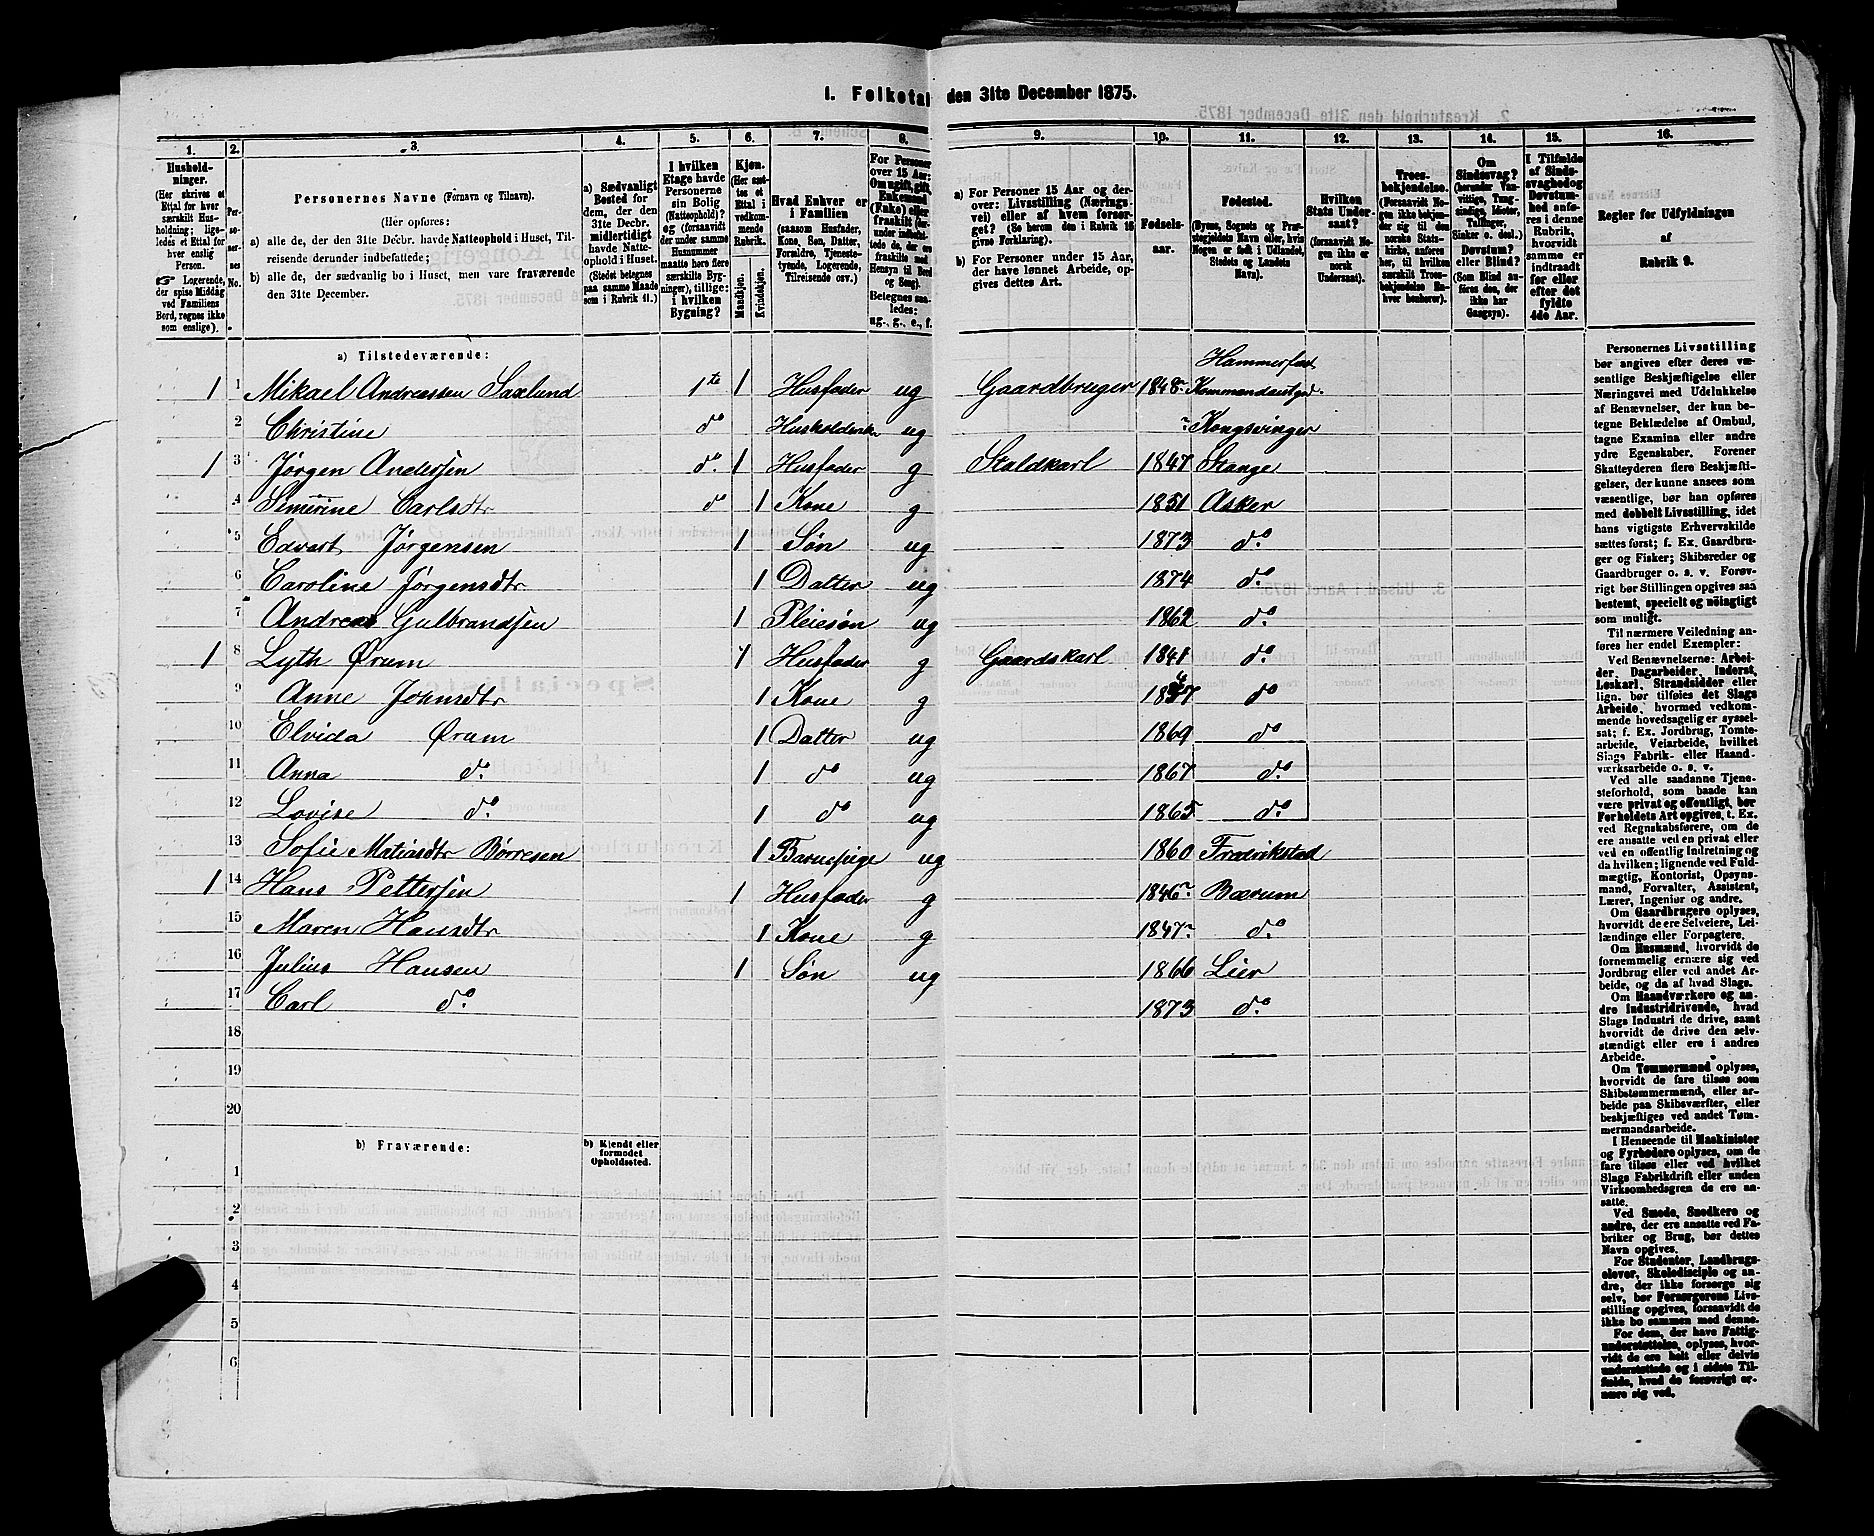 1. Folketal den 31te December 1875.
1. 2. 3. 4. 5. 6. 7. 8. 9. 10. 11. 12. 13. 14. 15. 16.
Husholdninger. (Her skrives et Ettal for hver særskilt Husholdning; ligeledes et Ettal for hver enslig Person. Logerende, der spise Middag ved Familiens Bord, regnes ikke som enslige).
Personernes No.
Personernes Navne (Fornavn og Tilnavn).
(Her opføres:
a) alle de, der den 31te Decbr. havde Natteophold i Huset, Tilreisende derunder indbefattede;
b) alle de, der sædvanlig bo i Huset, men vare fraværende den 31te December.
a) Sædvanligt Bosted for dem, der den 31te Decbr. midlertidigt havde Natteophold i Huset. (Stedet betegnes paa samme Maade som i Rubrik 11.)
I hvilken Etage havde Personerne sin Bolig (Natteophold)? og (forsaavidt der under samme Husnummer maatte høre flere særskilte Bygninger), tillige: i hvilken Bygning?
Kjøn. (Her sættes et Ettal i vedkommende Rubrik.
Mandkjøn. Kvindekjøn.
Hvad Enhver er i Familien (saasom Husfader, Kone, Søn, Datter, Forældre, Tjenestetyende, Logerende, Tilreisende osv.)
a) For Personer 15 Aar og derover: Livsstilling (Næringsvei) eller af hvem forsørget? (Se herom den i Rubrik 16 givne Forklaring).
b) For Personer under 15 Aar, der have lønnet Arbeide, opgives dettes Art.
Fødselsaar.
Fødested. (Byens, Sognets og Præstegjeldets Navn eller, hvis Nogen er født i Udlandet, Stedets og Landets Navn).
Hvilken Stats Undersaat? (forsaavidt Nogen ikke er norsk Undersaat).
Troesbekjendelse. (Forsaavidt Nogen ikke bekjender sig til den norske Statskirke, anføres her, til hvilken særskilt Troesbekjendelse Enhver henhører).
Om Sindssvag? (herunder Vanvittige, Tungsindige, Idioter, Tullinger, Sinker o. desl.). Døvstum? eller Blind? (Som Blind anføres den, der ikke har Gangsyn).
I Tilfælde af Sindssvaghed og Døvstumhed anføres i denne Rubrik, hvorvidt samme er indtraadt før eller efter det fyldte 4de Aar.
Regler for Udfyldningen af Rubrik 9.
a) Tilstedeværende:
1 1 Mikael Andreassen Saxlund 1te 1 Husfader ug Gaardbruger 1848 Hammerfest Kommandantgd.
2 Christine do Husholderske ug " Kongsvinger
1 3 Jørgen Andersen do. 1 Husfader g Staldkarl 1847 Stange
4 Simirine Carlsdtr do 1 Kone g 1851 Asker
5 Edvart Jørgensen 1 Søn ug 1873 do.
6 Caroline Jørgensdtr 1 Datter ug 1874 do.
7 Andreas Gulbrandsen 1 Pleiesøn ug 1862 do.
1 8 Lyth Ørum 1 Husfader g Gaardskarl 1841 do.
9 Anne Johnsdtr 1 Kone g 1847 do
10 Elvida Ørum 1 Datter ug 1869 do
11 Anna do. 1 do ug 1867 do.
12 Lovise do. 1 do ug 1865 do.
13 Sofie Matiasdtr Børresen 1 Barnepige ug 1860 Fredrikstad
1 14 Hans Pettersen 1 Husfader g 1846 Bærum
15 Maren Hansdtr 1 Kone g 1847 do.
16 Julius Hansen 1 Søn ug 1866 Lier
17 Carl do. 1873 do.
18
19
20
b) Fraværende: b) Kjendt eller formodet Opholdssted.
1
2
3
4
5
6
Personernes Livsstilling
bør angives efter deres væ-
sentlige Beskjæftigelse eller
Næringsvei med Udelukkelse
af Benævnelser, der kun be-
tegne Beklædelse af Ombud,
tagne Examina eller andre
ydre Egenskaber. Forener
Skatteyderen flere Beskjæfti-
gelser, der kunne ansees som
væsentlige, bør han opføres
med dobbelt Livsstilling, idet
hans vigtigste Erhvervskilde
sættes først; f. Ex. Gaardbru-
ger og Fisker; Skibsreder og
Gaardbruger o. s. v. Forøv-
rigt bør Stillingen opgives saa
bestemt, specielt og nøiagtigt
som muligt.
Til nærmere Veiledning an-
føres her endel Exempler:
Ved Benævnelserne: Arbei-
der, Dagarbeider, Inderst,
Løskarl, Strandsidder eller
lign. bør tilføies det Slags
Arbeide, hvormed vedkom-
mende hovedsagelig er syssel-
sat; f. Ex. Jordbrug, Tomte-
arbeide, Veiarbeide, hvilket
Slags Fabrik- eller Haand-
værksarbeide o. s. v.
Ved alle saadanne Tjene-
steforhold, som baade kan
være privat og offentligt, bør
Forholdets Art opgives, t. Ex.
ved Regnskabsførere, om de
ere ansatte ved en privat eller
ved en offentlig Indretning og
da hvilken; lignende ved Fuld-
mægtig, Kontorist, Opsyns-
mand, Forvalter, Assistent,
Lærer, Ingeniør og andre.
Om Gaardbrugere oplyses,
hvorvidt de ere Selveiere, Lei-
lændinge eller Forpagtere.
Om Husmænd, hvorvidt de
fornemmelig ernære sig ved
Jordbrug eller ved andet Ar-
beide, og da af hvad Slags.
Om Haandværkere og an-
dre Industridrivende, hvad
Slags Industri de drive, samt
hvorvidt de drive den selv-
stændigt eller ere i andres
Arbeide.
Om Tømmermænd oplyses,
hvorvidt de fare tilsøs som
Skibstømmermænd, eller ar-
beide paa Skibsværfter, eller
beskjæftiges ved andet Tøm-
mermandsarbeide.
I Henseende til Maskinister
og Fyrbødere oplyses, om de
fare tilsøs eller ved hvilket
Slags Fabrikdrift eller anden
Virksomhedsgren de ere an-
satte.
Ved Smede, Snedkere og
andre, der ere ansatte ved Fa-
briker og Brug, bør dettes
Navn opgives.
For Studenter, Landbrugs-
elever, Skoledisciple og an-
dre, der ikke forsørge sig
selv, bør Forsørgerens Livs-
stilling opgives, forsaavidt de
ikke bo sammen med denne.
For dem, der have Fattig-
understøttelse, oplyses, hvor-
vidt de ere helt eller delvis
understøttede og i sidste Til-
fælde, hvad de forøvrigt er-
nære sig ved.